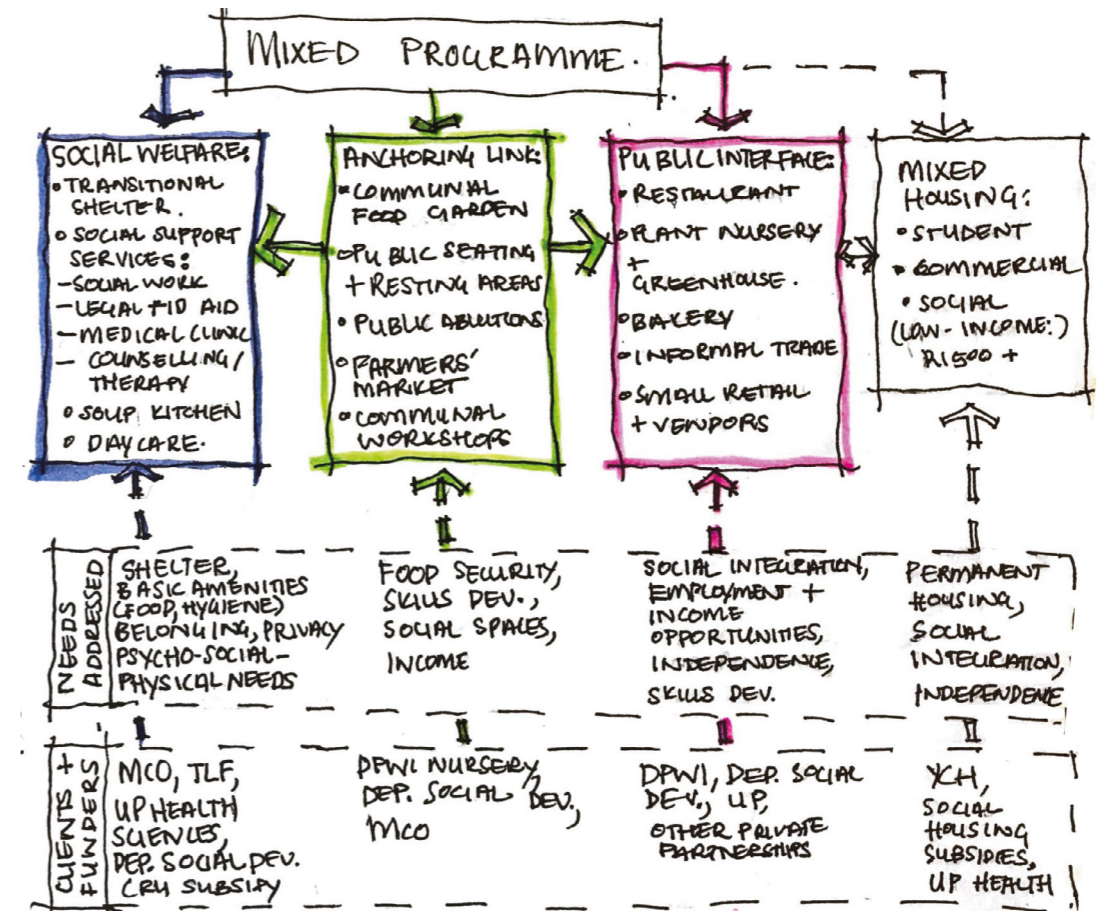 MIXED PROGRAMME.
SOCIAL WELFARE:
• TRANSITIONAL
SHELTER.
• SOCIAL SUPPORT
SERVICES:
- SOCIAL WORK
- LEGAL + ID AID
- MEDICAL CLINIC
- COUNSELLING/
THERAPY
• SOUP KITCHEN
• DAYCARE.
ANCHORING LINK:
• COMMUNAL
FOOD GARDEN
• PUBLIC SEATING
+ RESTING AREAS
• PUBLIC ABLUTIONS
• FARMERS'
MARKET
• COMMUNAL
WORKSHOPS
PUBLIC INTERFACE:
• RESTAURANT
• PLANT NURSERY
+
GREENHOUSE.
• BAKERY
• INFORMAL TRADE
• SMALL RETAIL
+ VENDORS
MIXED
HOUSING:
• STUDENT
• COMMERCIAL
• SOCIAL
(LOW-INCOME:)
R1500 +
NEEDS
ADDRESSED
SHELTER,
BASIC AMENITIES
(FOOD, HYGIENE)
BELONGING, PRIVACY
PSYCHO-SOCIAL-
PHYSICAL NEEDS
FOOD SECURITY,
SKILLS DEV.,
SOCIAL SPACES,
INCOME
SOCIAL INTEGRATION,
EMPLOYMENT +
INCOME
OPPORTUNITIES,
INDEPENDENCE,
SKILLS DEV.
PERMANENT
HOUSING,
SOCIAL
INTEGRATION,
INDEPENDENCE
CLIENTS +
FUNDERS
MCO, TLF,
UP HEALTH
SCIENCES,
DEP. SOCIAL DEV.
CRU SUBSIDY
DPWI NURSERY,
DEP. SOCIAL DEV.,
MCO
DPWI, DEP. SOCIAL
DEV., UP,
OTHER PRIVATE
PARTNERSHIPS
YCH,
SOCIAL
HOUSING
SUBSIDIES,
UP HEALTH